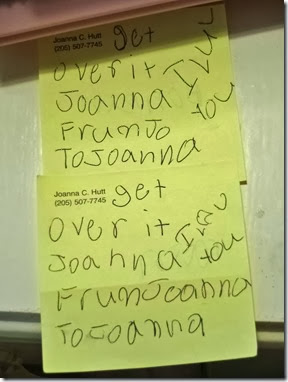 Joanna C. Hutt
(205) 507-7745
get
over it
Joanna
Frum Jo
To Joanna
I
you
Joanna C. Hutt
(205) 507-7745
get
over it
Joanna
Frum Joanna
To Joanna
I
you